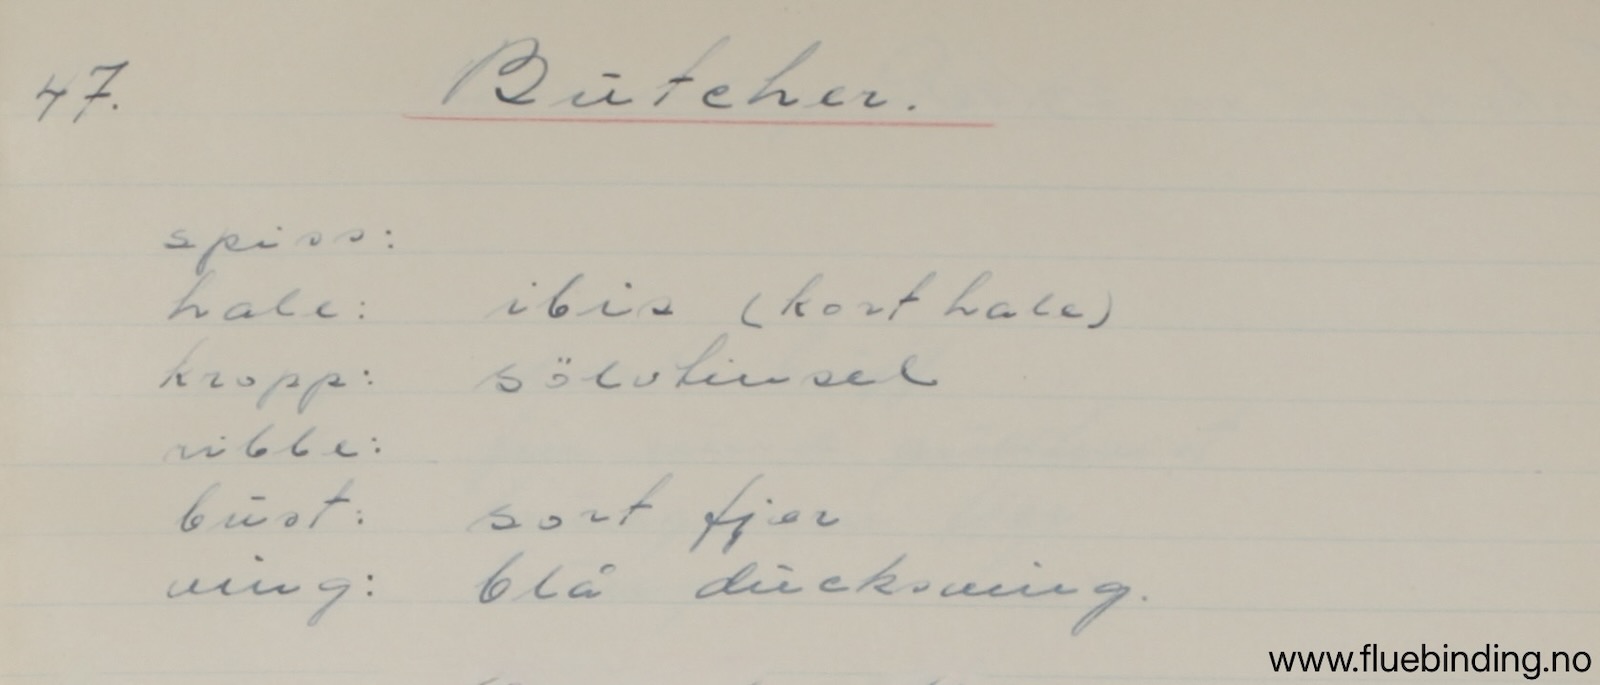 47. Būtcher.
spiss:
hale: ibis (kort hale)
kropp: sölvtinsel
ribbe:
būst: sort fjær
ving: blå dūcksving.
www.fluebinding.no